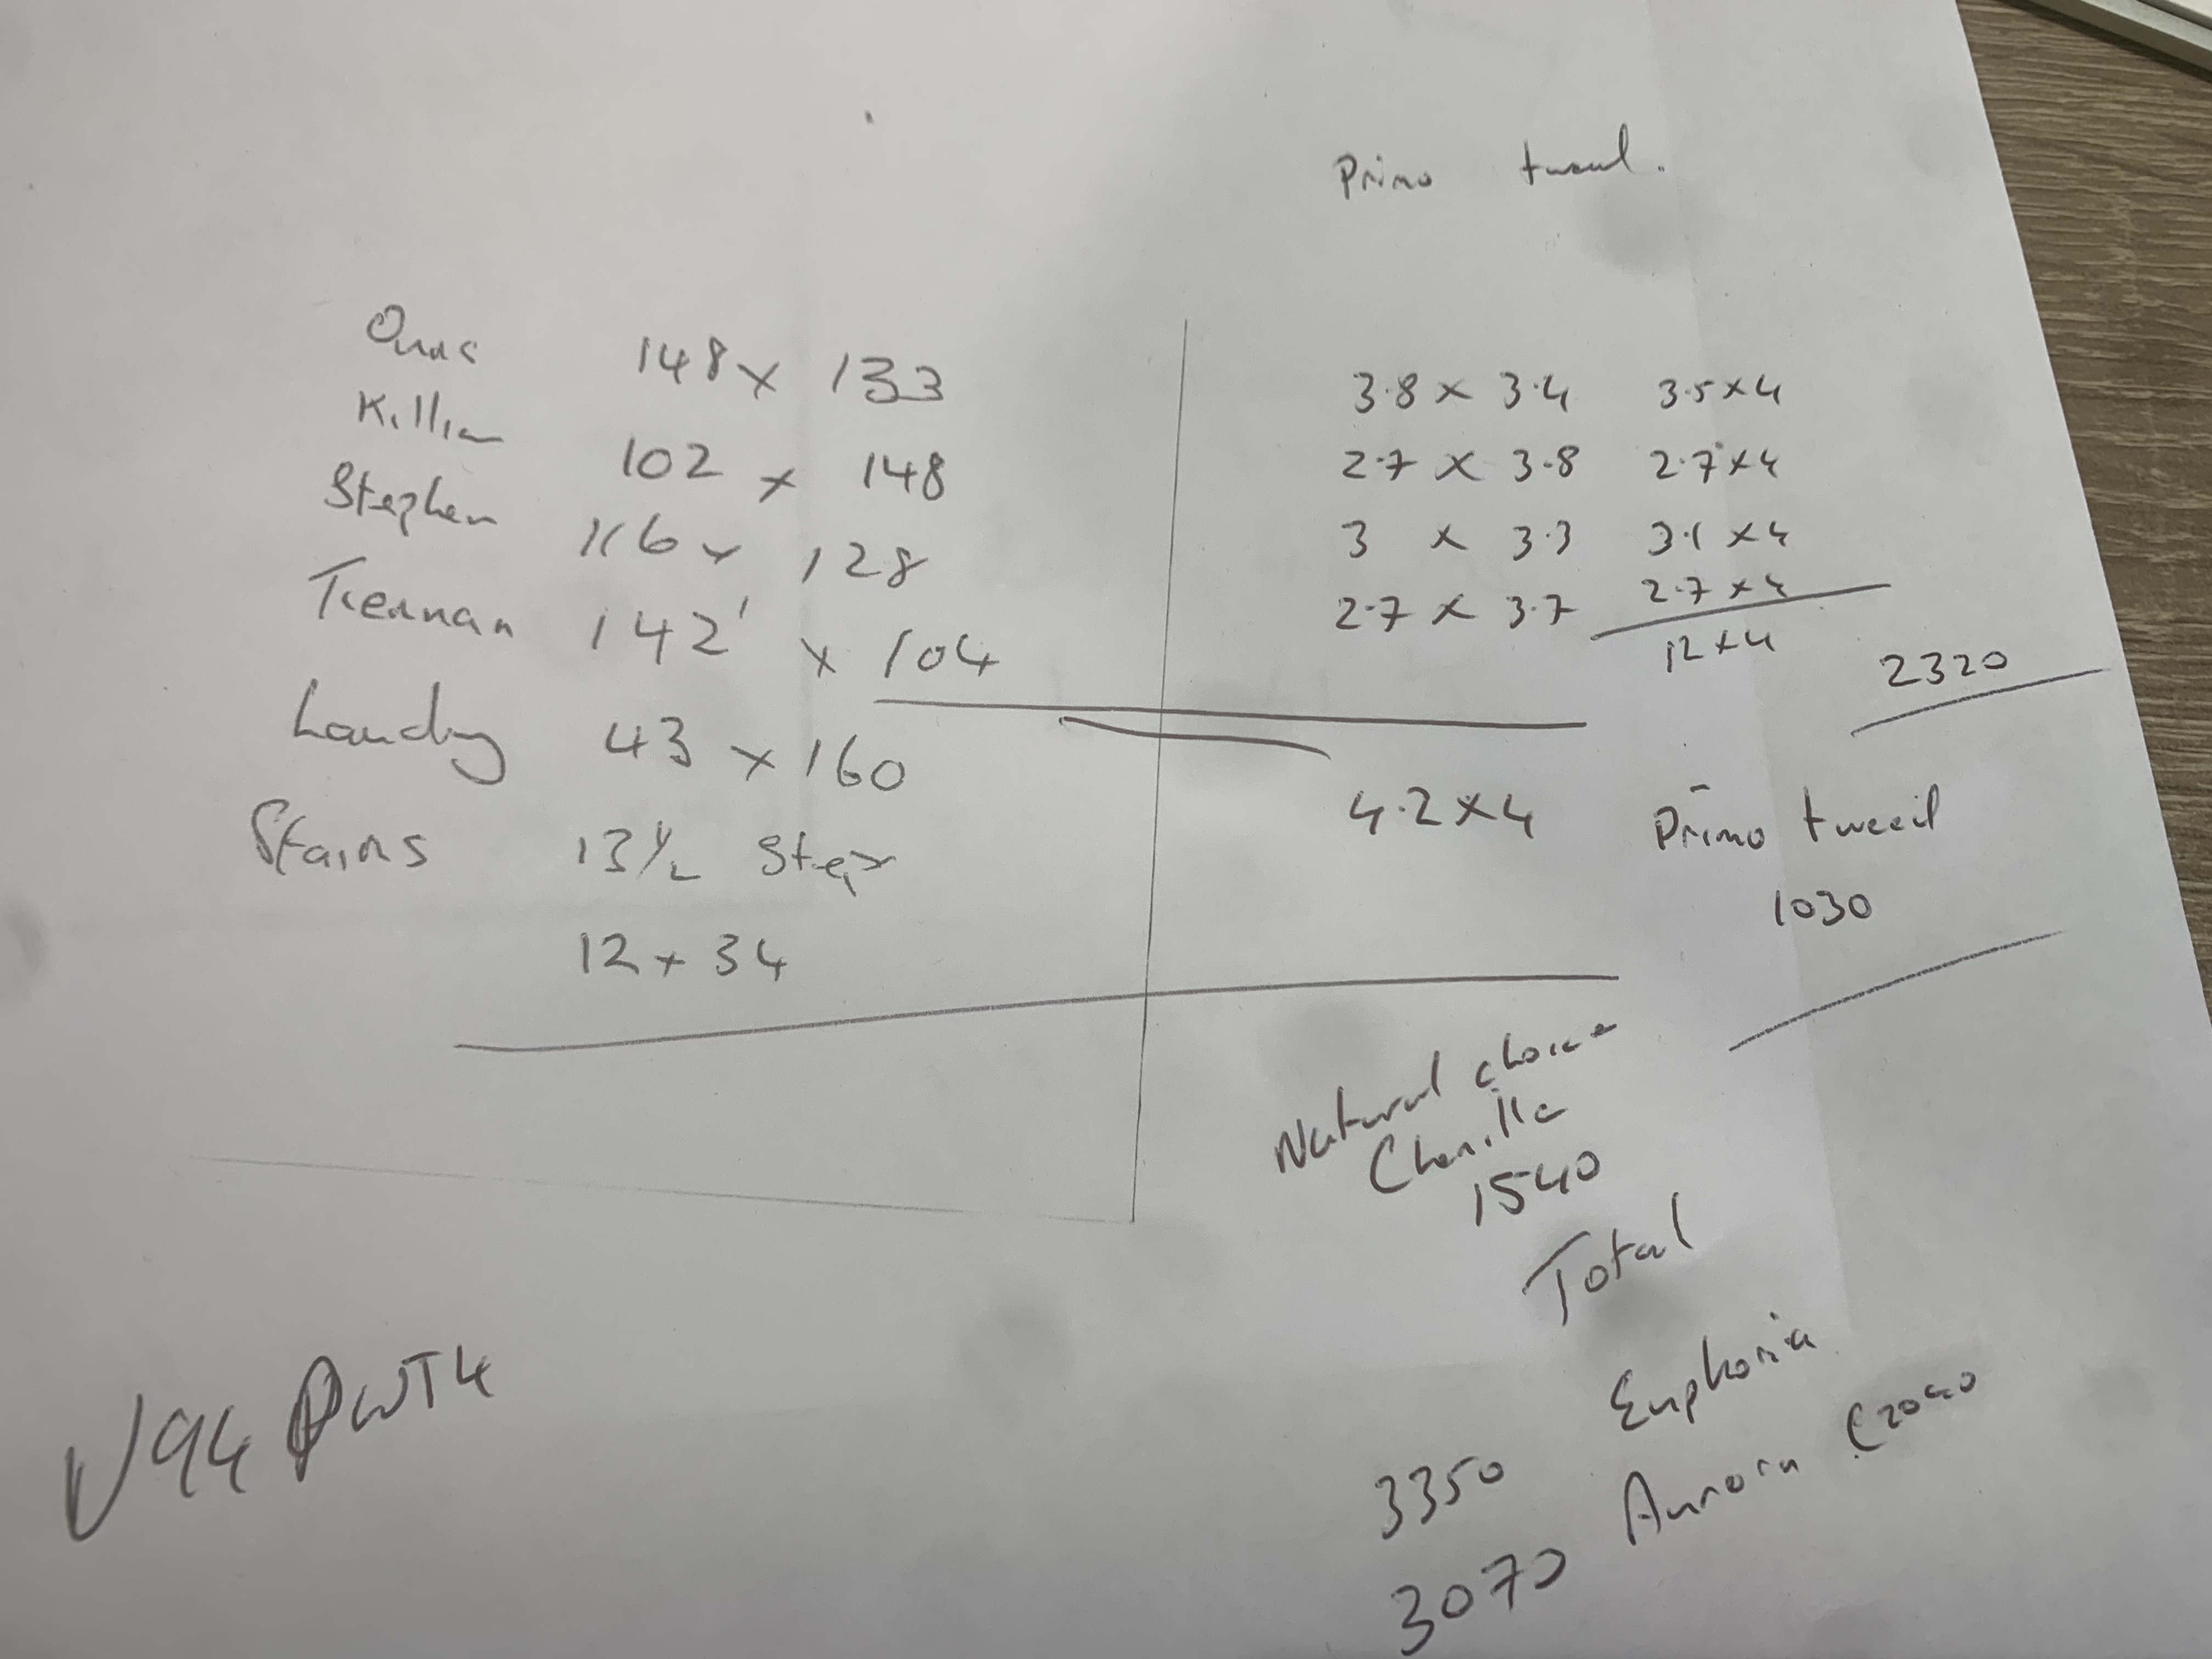 Primo tweed.
Ours 148 x 133
Killian 102 x 148
Stephen 116 x 128
Tiernan 142' x 104
Laundry 43 x 160
Stairs 13½ Step
12 x 34
3.8 x 3.4 3.5 x 4
2.7 x 3.8 2.7 x 4
3 x 3.3 3.1 x 4
2.7 x 3.7 2.7 x 4
12 x 4
2320
4.2 x 4 Primo tweed
1030
Natural choice
Chenille
1540
Total
3350 Euphoria
3070 Aurora
V94 PWT4